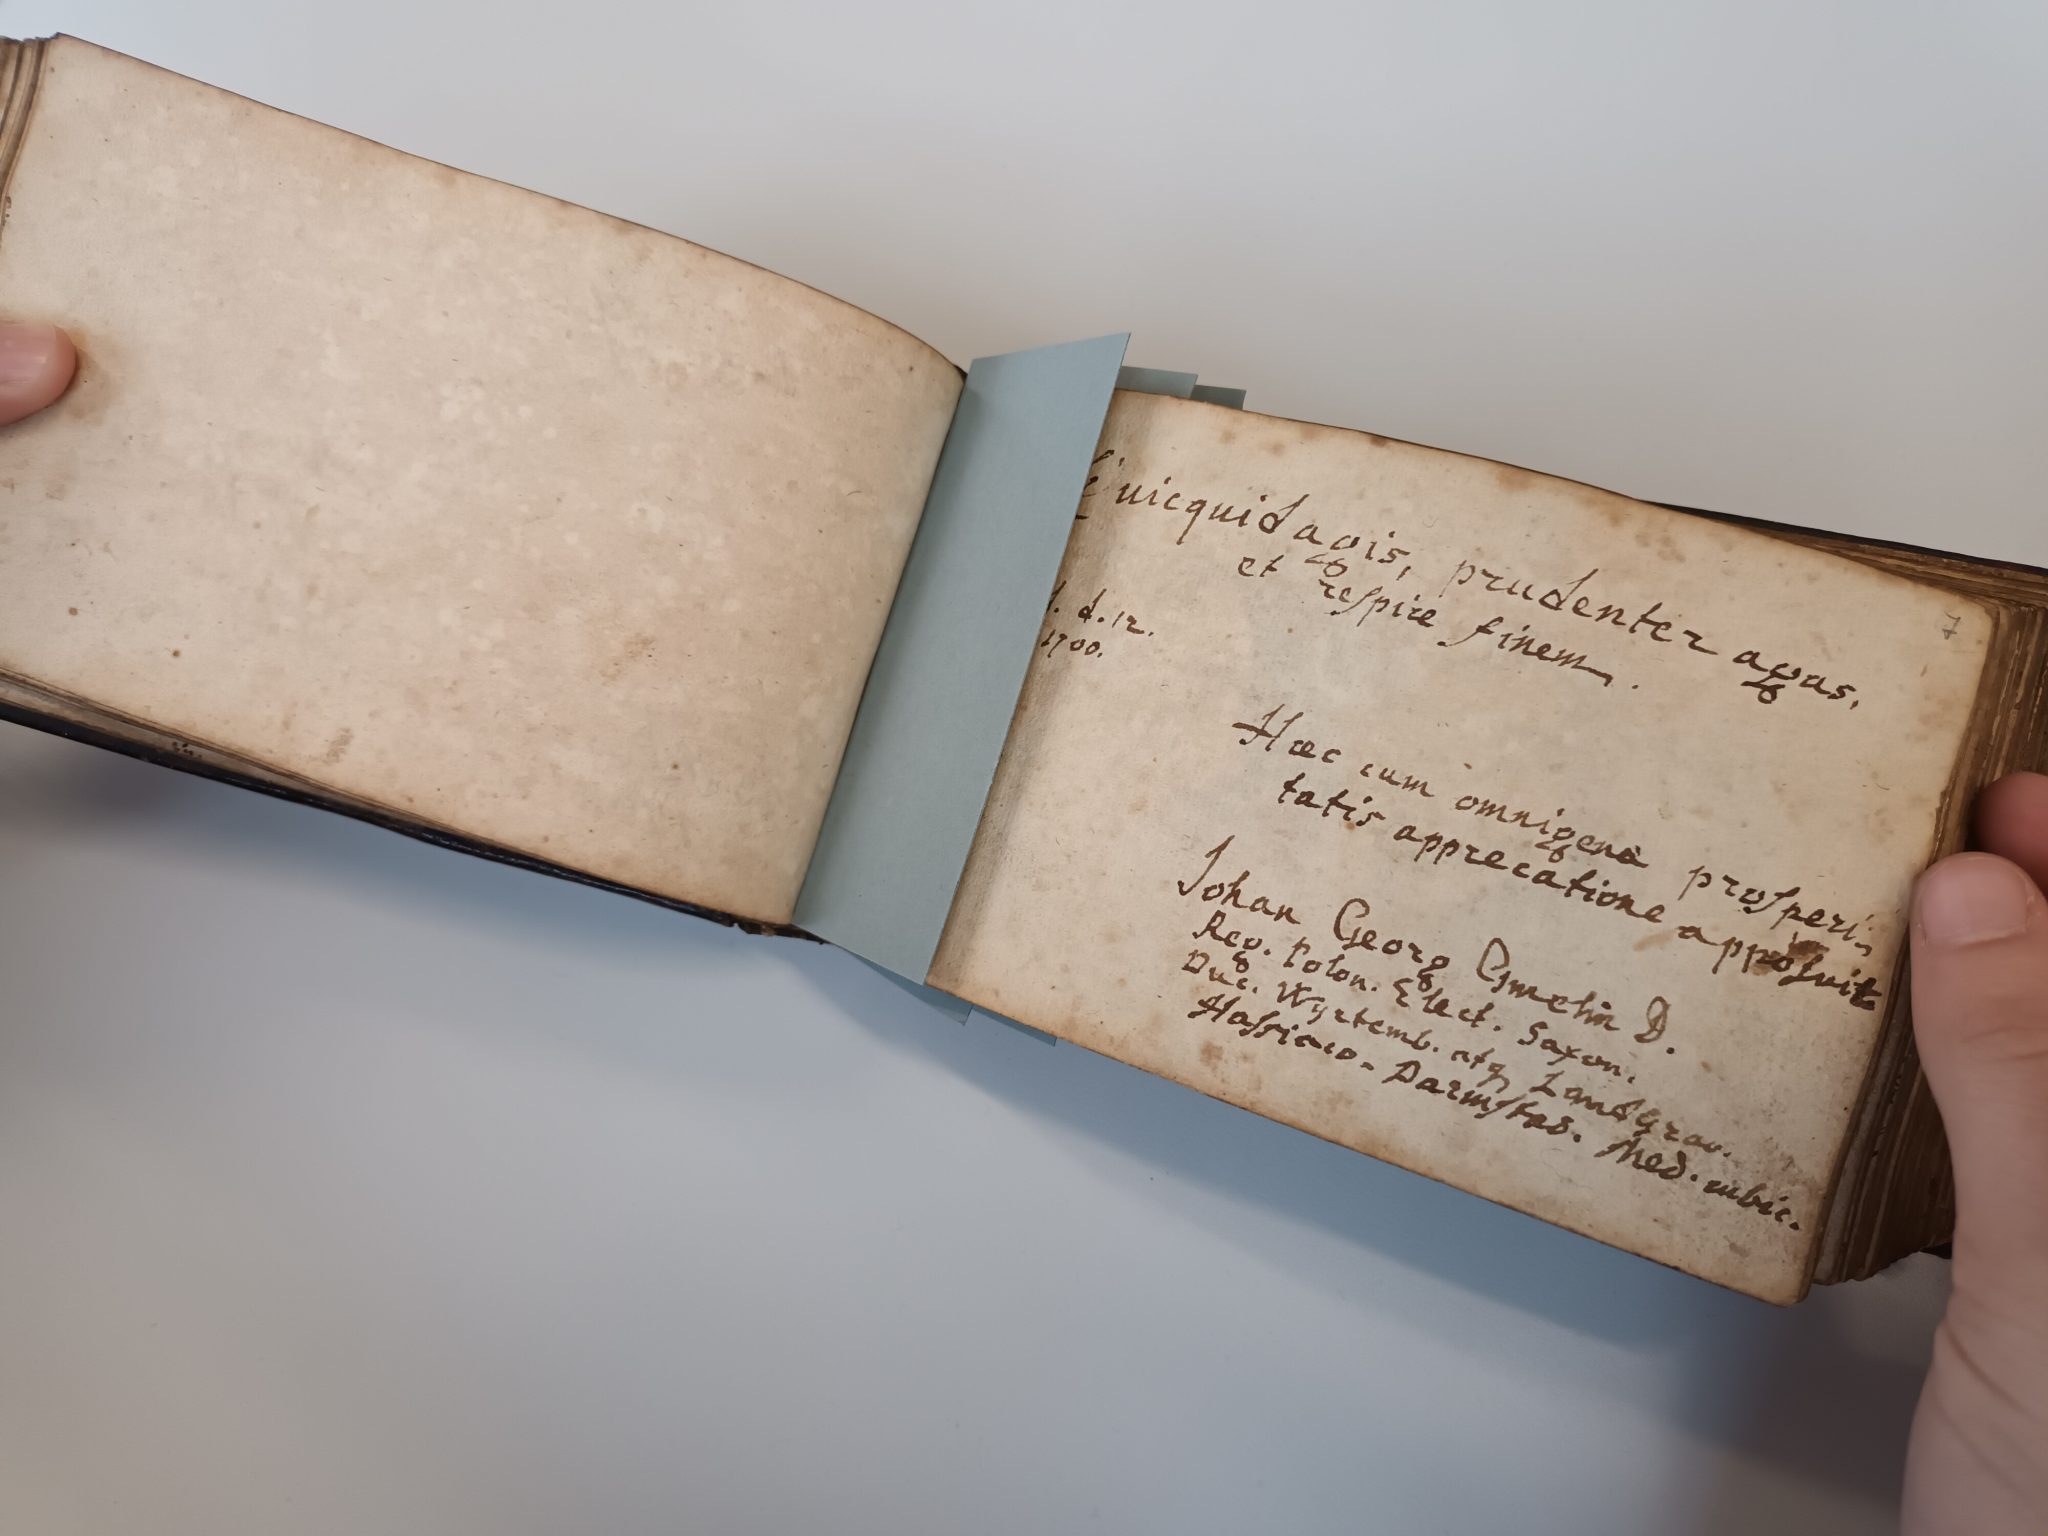 Quicquid agis, prudenter agas,
et respice finem.
d. 12.
1700.
7
Hæc cum omnigenâ prosperi-
tatis apprecatione apposuit
Johan Georg Gmelin D.
Reg. Polon. Elect. Saxon.
Duc. Wyrtemb. atq Landgrav.
Hassiaco-Darmstad. Med. aulic.